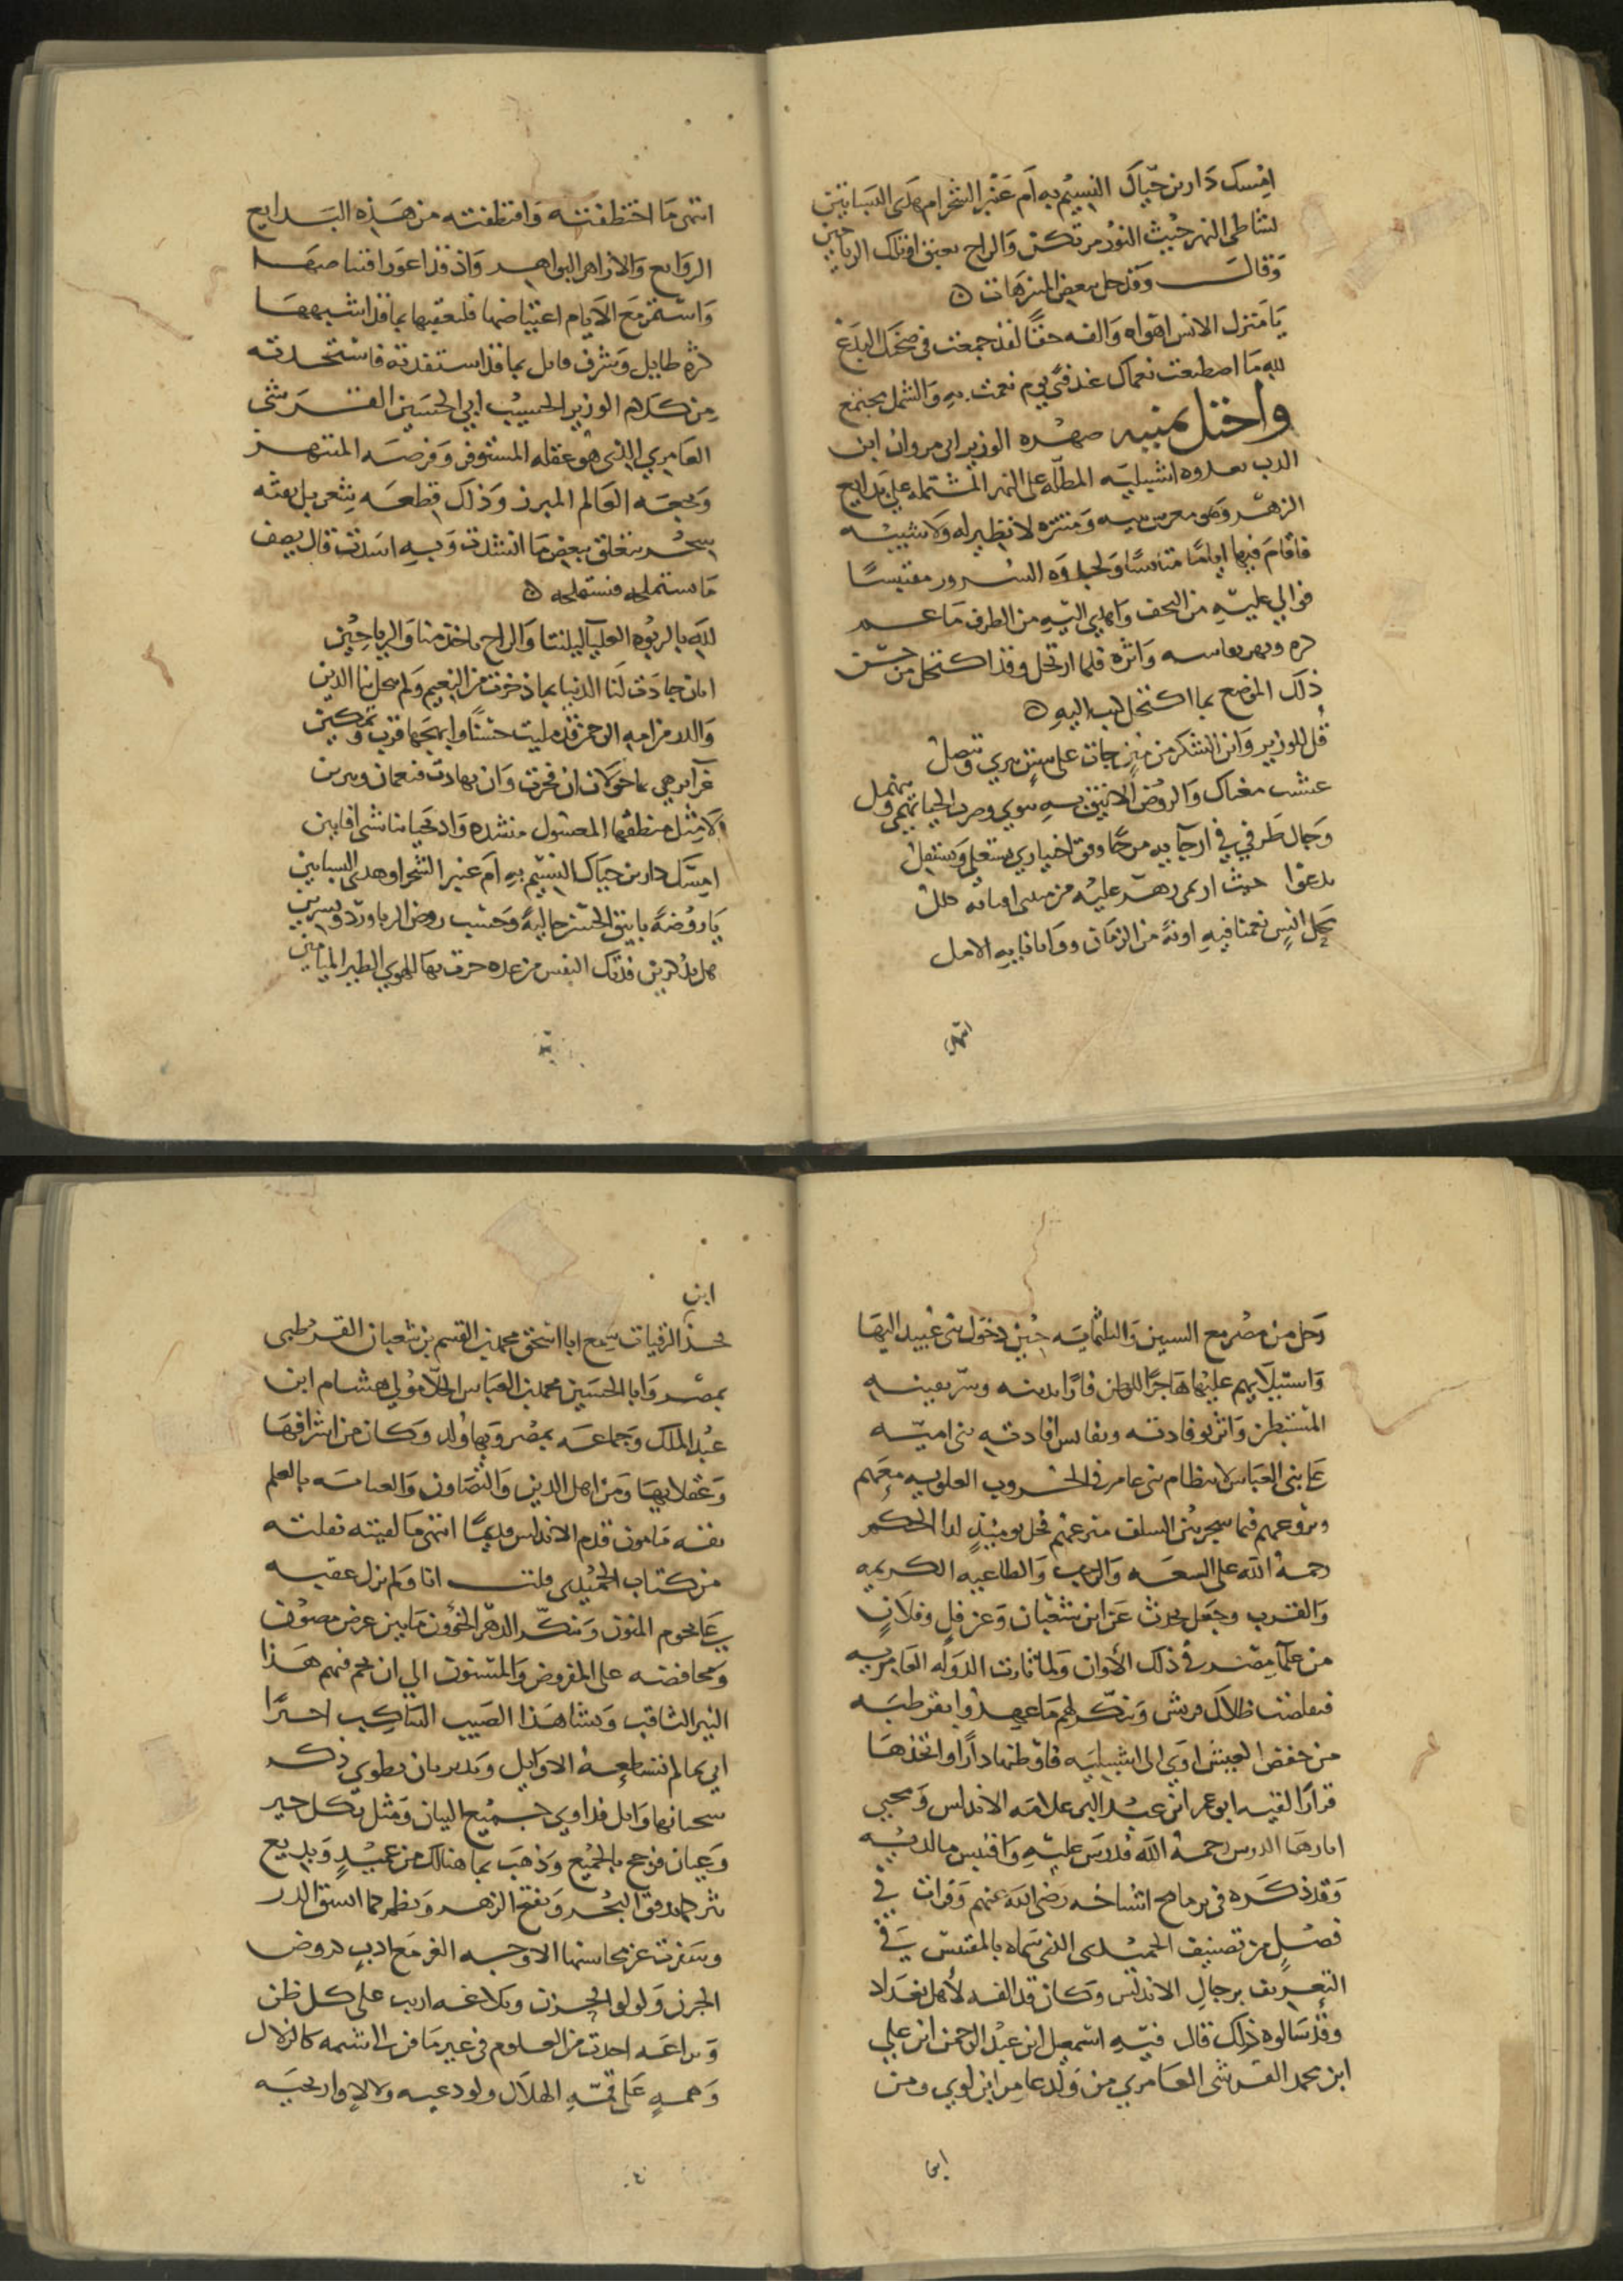 امسك دارين حياك النسيم به ام عنبر الشحر ام هذى البساتين
بشاطى النهر حيث النور مرتكن والراح تعبق او تلك الرياحين
وقال وقد حل ببعض المنزهات ۞
يا منزل الانس اهواه والفه حقا لقد جمعت فى صحنك البدع
لله ما اصطنعت نعماك عندى فى يوم نعمت به والشمل مجتمع
واحتل بمنيه صهره الوزير ابى مروان ابن
الدب بعدوه اشبيليه المطله على النهر المشتمله على بدايع
الزهر وهى معرس ومنتزه لا نظير له ولا شبيه
فاقام فيها اياما متانسا ولجذوه السرور مقتبسا
فوالي عليه من التحف واهدي اليه من الطرف ما عمر
واثره فلما ارتحل وقد اكتحل من حسن
ذلك الموضع بما اكتحل كتب اليه ۞
قل للوزير واين الشكر من منن جات على سنن تترى وتتصل
غشيت مغناك والروض الانيق به يندى وصوب الحيا يهمى وينهمل
وجال طرفي في ارجايه مرحا وفق اختيارى يستعلى ويستفل
ندعوا حيث ارتمى زهر عليه من افنانه كلل
محل انس نعمنا فيه اونة من الزمان ووافانا به الامل
انتهى
انتهى ما اختطفته واقتطفته من هذه البدايع
الروايع والازاهر البواهر واذ قد اعوز اقتناصها
واستمر مع الايام اعتياضها فلنعقبها بما قد اشبهها
كثرة طايل وشرف قايل بما قد استفدته فاستجدته
من كلام الوزير الحسيب ابي الحسين القرشى
العامري الذى هو عقله المستوفز وفرصه المنتهز
وبجعه العالم المبرز وذلك قطعه شعر بل نفثه
سحر يتعلق ببعض ما انشدت وبه اسندت قال يصف
ما ستملحه فنستملحه ۞
لله بالربوه العليا ليلتنا والراح ماخذ منا والرياحين
امان جادت لنا الدنيا بما ذخرت من النعيم ولم يبخل بنا الدين
قد مليت حسنا وابهجها قرب وتمكين
غرا يزهى بها خولان ان فخرت وان تهادت فنعمان ويبرين
الا مثل منطقها المعسول منشده واد تحيا بنا شى افانين
امسك دارين حياك النسيم به ام عنبر الشحر او هذى البساتين
يا روضة بانيق الحسن حالية وحسب روض الربا ورد ونسرين
هل تذكرين فدتك النفس من عده جرت بها للهوى الطير الميامين
رحل من مصر مع السبين والثلثمايه حين دخول بنى عبيد اليها
واستيلايهم عليها هاجرا للوطن فارا بدينه وسر يقينه
المستبطن واثر بوفادته ونفايس افادته بنى اميه
على بنى العباس لانتظام بنى عامر فى الحروب العلويه معهم
ونزوعهم فيما شجر بين السلف منزعهم فحل يومئذ لدا الحكم
رحمه الله على السعه والرحب والطاعيه الكريمه
والقرب وجعل يحدث عن ابن شعبان وعن فل وفلان
من علما مصر فى ذلك الأوان ولما ثارت الدوله العامريه
فتقلصت ظلال قريش وتنكر لهم ما عهدوا بقرطبه
من خفض العيش اوى الى اشبيليه فاوطنها دارا واتخذها
قرارا لقيه ابو عمر ابن عبد البر علامه الاندلس ومحيى
اثارها الدرس رحمه الله فدرس عليه واقتبس ما لديه
وقد ذكره فى برنامج اشياخه رضى الله عنهم وقرات فى
فصل من تصنيف الحميدى الذى سماه بالمقتبس فى
التعريف برجال الاندلس وكان قد الفه لأهل بغداد
وقد سالوه ذلك قال فيه اسمعيل ابن عبد الرحمن ابن علي
ابن محمد القرشى العامري من ولد عامر ابن لوي ومن
ابن
ابن
الزيات سمع ابا اسحق محمد بن القسم بن شعبان القرطبى
بمصر وابا الحسين محمد بن العباس الحلا مولى هشام ابن
عبد الملك وجماعه بمصر وبها ولد وكان من اشرافها
وعقلايها ومن اهل الدين والتصاون والعنايه بالعلم
ثقه مامون قدم الاندلس قديما انتهى ما لفيته نقلته
من كتاب الحميدى قلت انا ولم يزل عقبه
على نجوم المنون وتنكر الدهر الخؤون ما بين عرض مصون
ومحافظه على المفروض والمسنون الي ان نجم فيهم هذا
النير الثاقب ونشا هذا الصيب الساكب اخرا
اتى بما لم تستطعه الاوايل ونديه بان يطوي ذكر
سحبانها وايل فداوى جميع البيان ومثل بكل خبر
وعيان فرجح بالجميع وذهب بما هنالك من عبيد وبديع
نثر كما تدفق البحر وتفتح الزهر ونظم كما اتسق الدر
وسفرت عن محاسنها الاوجه الغر مع ادب كروض
الحزن ولولو المزن وبلاغه اربت على كل ظن
وبراعه اخذت من العلوم فى غير ما فن الى شيمه كالزلال
وهمه على قمة الهلال ولوذعيه ولالا واريحيه